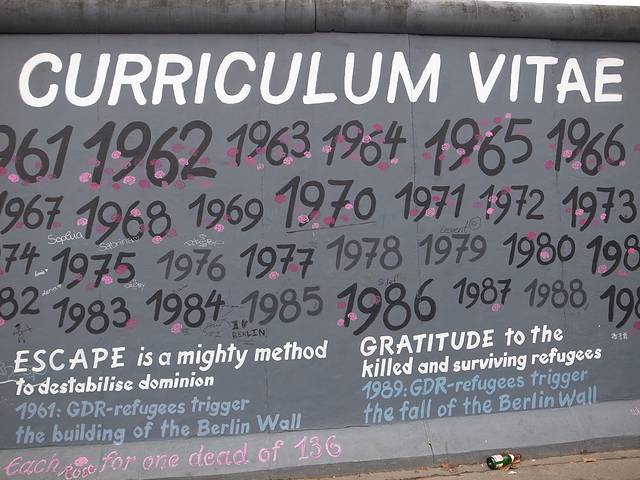 CURRICULUM VITAE
961 1962 1963 1964 1965 1966
1967 1968 1969 1970 1971 1972 1973
74 1975 1976 1977 1978 1979 1980 198
82 1983 1984 1985 1986 1987 1988 198
Sophia
Sabrina
BERLIN
ESCAPE is a mighty method
to destabilise dominion
1961: GDR-refugees trigger
the building of the Berlin Wall
GRATITUDE to the
killed and surviving refugees
1989: GDR-refugees trigger
the fall of the Berlin Wall
Each rose for one dead of 136